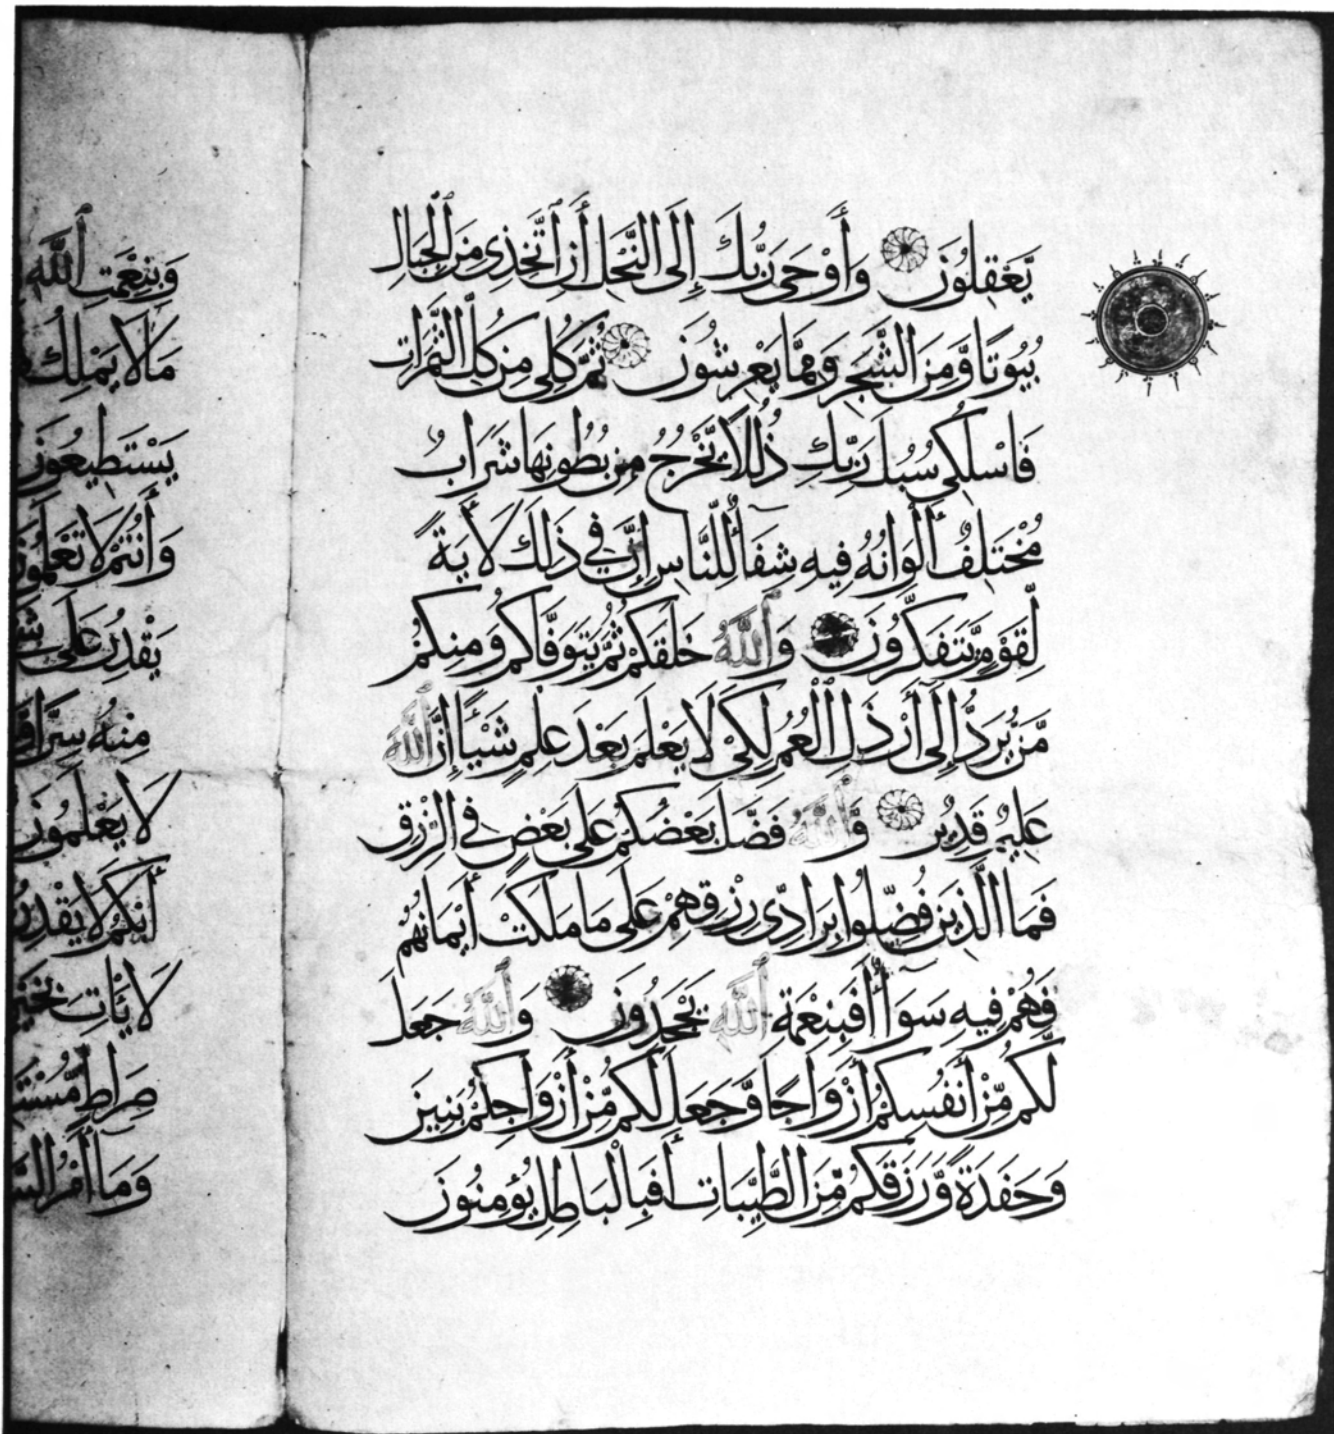 يَّعْقِلُونَ وَأَوْحَى رَبُّكَ إِلَى النَّحْلِ أَنِ ٱتَّخِذِى مِنَ ٱلْجِبَالِ
بُيُوتًا وَّمِنَ الشَّجَرِ وَمِمَّا يَعْرِشُونَ ثُمَّ كُلِى مِن كُلِّ الثَّمَرَاتِ
فَاسْلُكِى سُبُلَ رَبِّكِ ذُلُلًا يَّخْرُجُ مِن بُطُونِهَا شَرَابٌ
مُّخْتَلِفٌ أَلْوَانُهُ فِيهِ شِفَآءٌ لِّلنَّاسِ إِنَّ فِي ذَلِكَ لَأَيَةً
لِّقَوْمٍ يَّتَفَكَّرُونَ وَٱللَّهُ خَلَقَكُمْ ثُمَّ يَتَوَفَّاكُمْ وَمِنكُمْ
مَّن يُّرَدُّ إِلَى أَرْذَلِ ٱلْعُمُرِ لِكَىْ لَا يَعْلَمَ بَعْدَ عِلْمٍ شَيْئًا إِنَّ ٱللَّهَ
عَلِيمٌ قَدِيرٌ وَٱللَّهُ فَضَّلَ بَعْضَكُمْ عَلَى بَعْضٍ فِي الرِّزْقِ
فَمَا الَّذِينَ فُضِّلُوا بِرَادِّى رِزْقِهِمْ عَلَى مَا مَلَكَتْ أَيْمَانُهُمْ
فَهُمْ فِيهِ سَوَآءٌ أَفَبِنِعْمَةِ ٱللَّهِ يَجْحَدُونَ وَٱللَّهُ جَعَلَ
لَكُم مِّنْ أَنفُسِكُمْ أَزْوَاجًا وَّجَعَلَ لَكُم مِّنْ أَزْوَاجِكُم بَنِينَ
وَحَفَدَةً وَّرَزَقَكُم مِّنَ الطَّيِّبَاتِ أَفَبِالْبَاطِلِ يُؤْمِنُونَ
وَبِنِعْمَتِ ٱللَّهِ
مَا لَا يَمْلِكُ
يَسْتَطِيعُونَ
وَأَنتُمْ لَا تَعْلَمُونَ
يَقْدِرُ عَلَى
مِنْهُ سِرًّا
لَا يَعْلَمُونَ
أَبْكَمُ لَا يَقْدِرُ
لَا يَأْتِ بِخَيْرٍ
صِرَاطٍ
وَمَا أَمْرُ